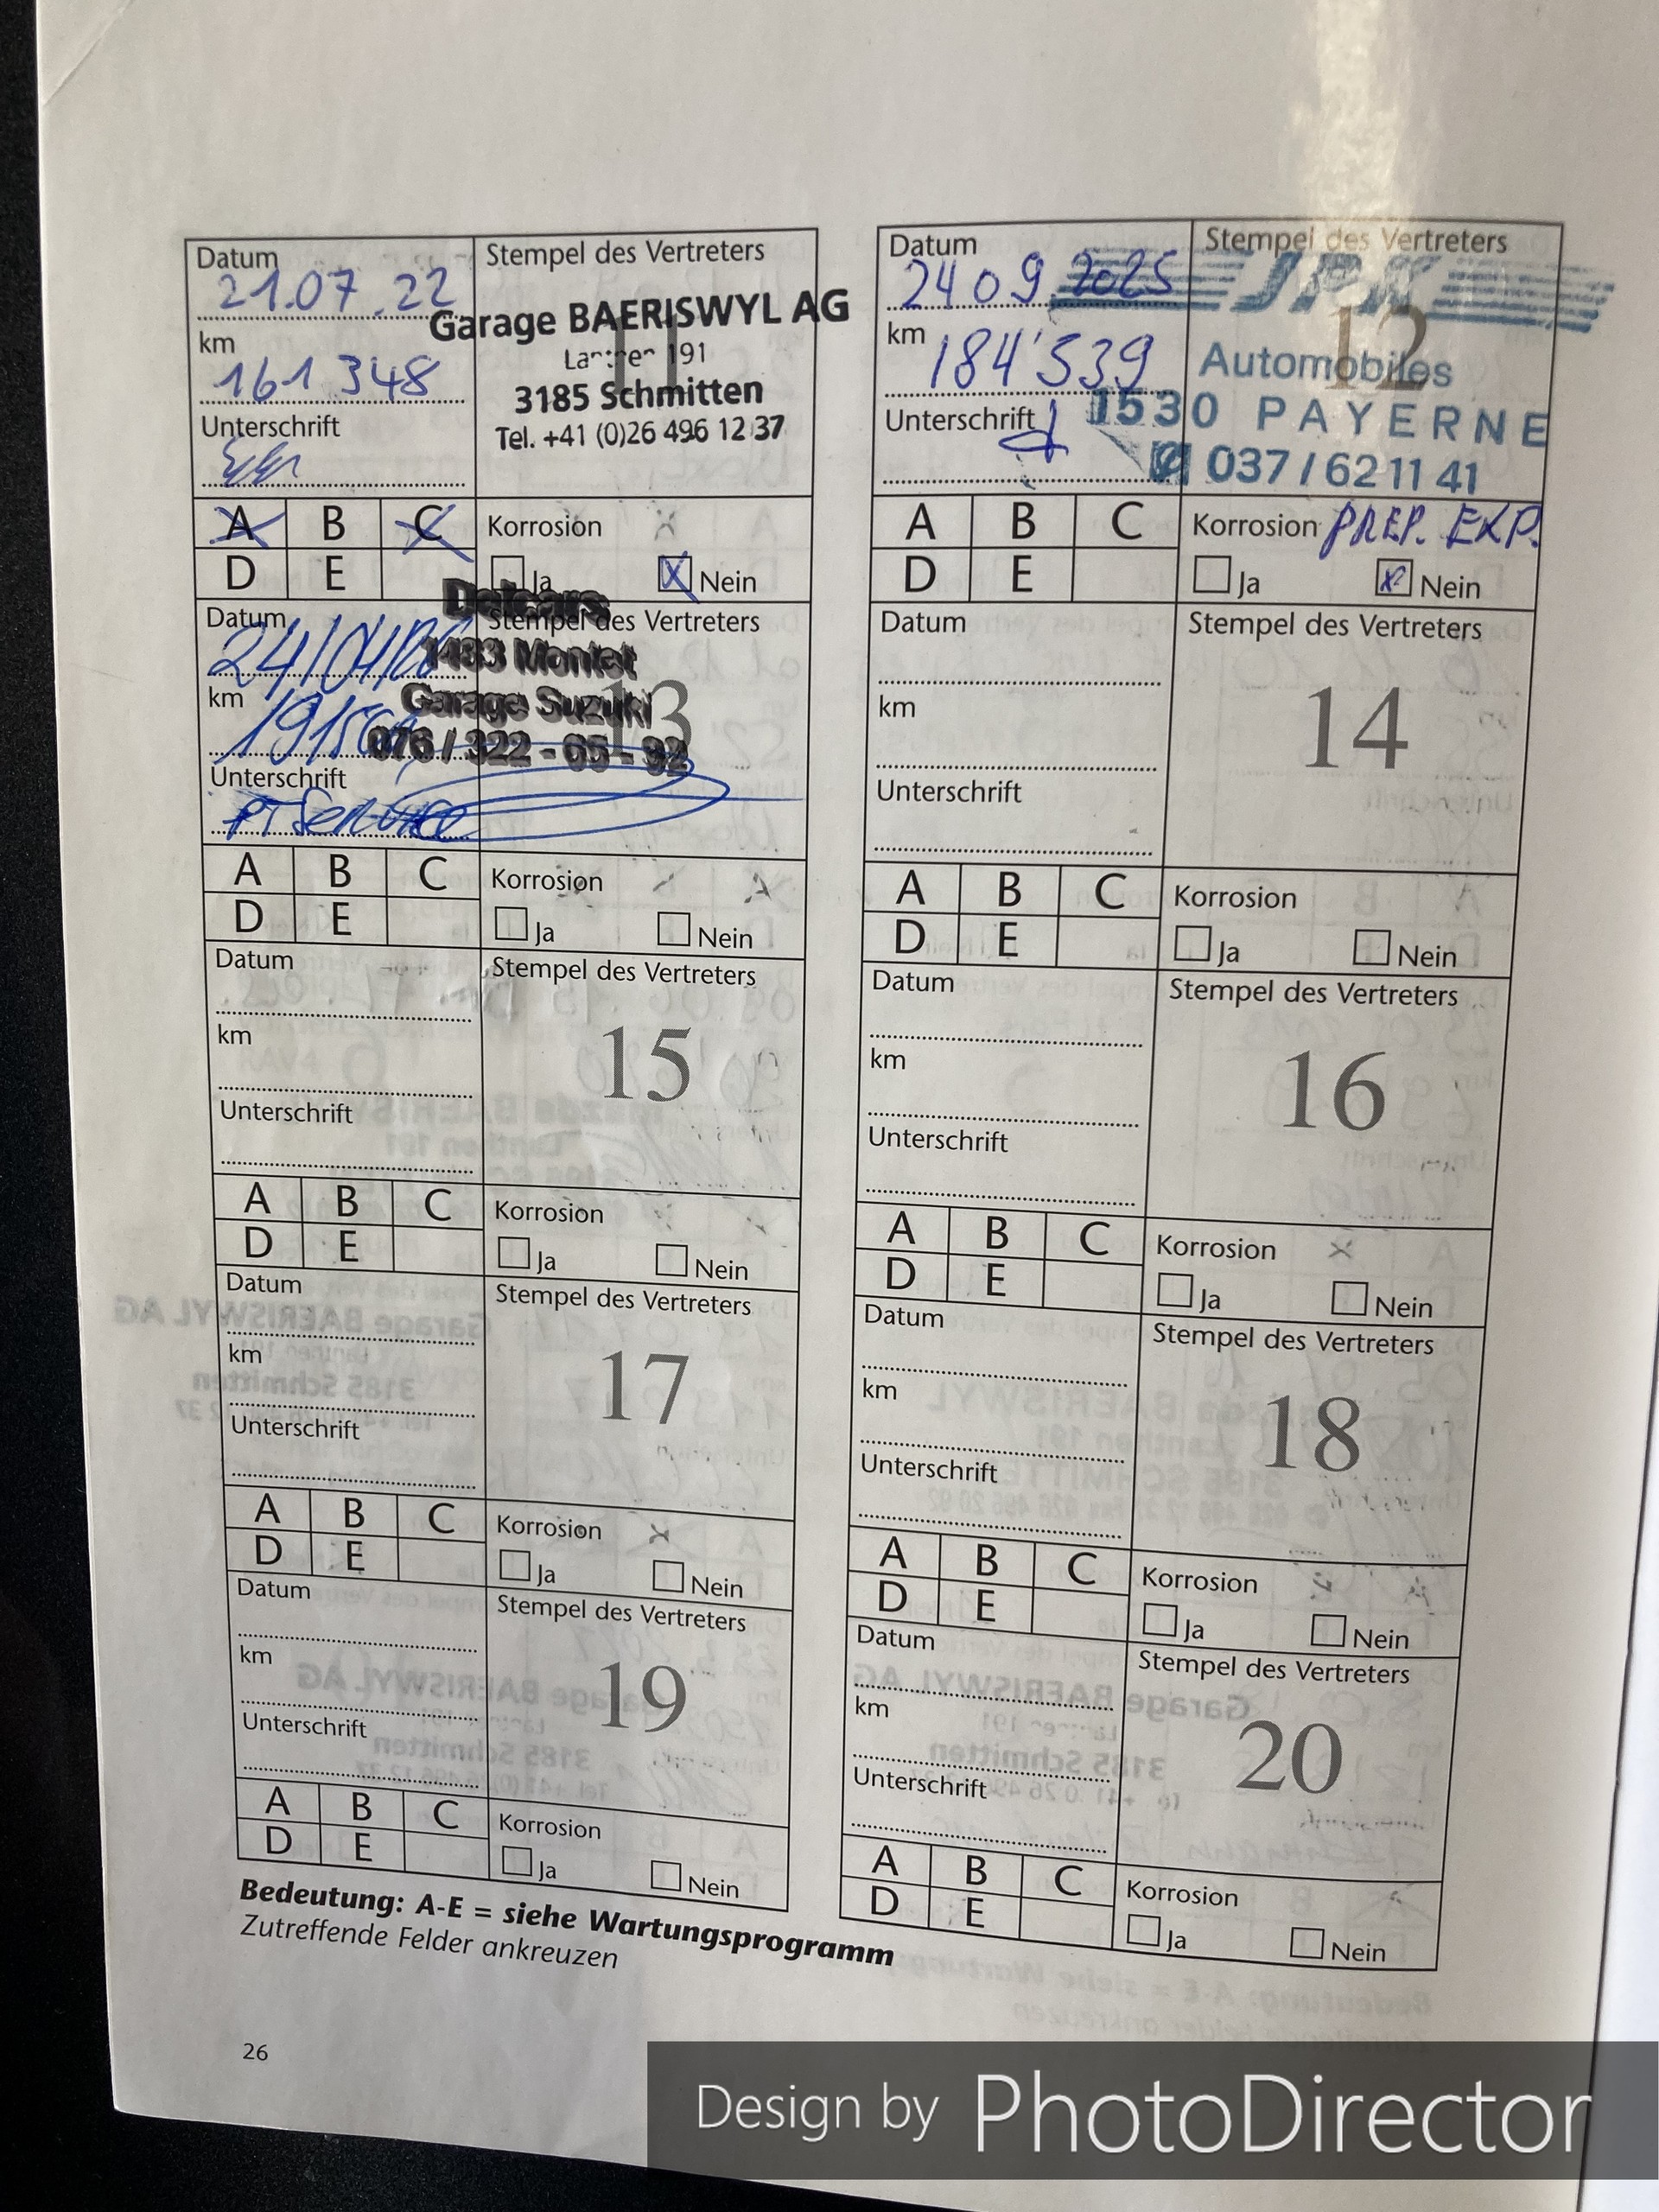 Datum
21.07.22
km
161 348
Unterschrift
Stempel des Vertreters
Garage BAERISWYL AG
191
3185 Schmitten
Tel. +41 (0)26 496 12 37
A B C
D E
Korrosion
Ja Nein
Datum
24 09 2025
km
184'539
Unterschrift
Stempel des Vertreters
12
JPK
Automobiles
1530 PAYERNE
037 / 62 11 41
A B C
D E
Korrosion PREP. EXP.
Ja Nein
Datum
24/04/26
km
Unterschrift
PT Service
Stempel des Vertreters
13
Delcars
1483 Montet
Garage Suzuki
076 / 322 - 65 - 92
A B C
D E
Korrosion
Ja Nein
Datum
km
Unterschrift
Stempel des Vertreters
14
A B C
D E
Korrosion
Ja Nein
Datum
km
Unterschrift
Stempel des Vertreters
15
A B C
D E
Korrosion
Ja Nein
Datum
km
Unterschrift
Stempel des Vertreters
16
A B C
D E
Korrosion
Ja Nein
Datum
km
Unterschrift
Stempel des Vertreters
17
A B C
D E
Korrosion
Ja Nein
Datum
km
Unterschrift
Stempel des Vertreters
18
A B C
D E
Korrosion
Ja Nein
Datum
km
Unterschrift
Stempel des Vertreters
19
A B C
D E
Korrosion
Ja Nein
Datum
km
Unterschrift
Stempel des Vertreters
20
A B C
D E
Korrosion
Ja Nein
Bedeutung: A-E = siehe Wartungsprogramm
Zutreffende Felder ankreuzen
26
Design by PhotoDirector